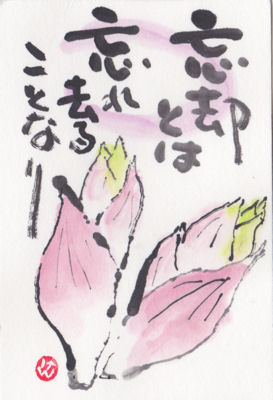 忘却とは
忘れ
去る
ことなり